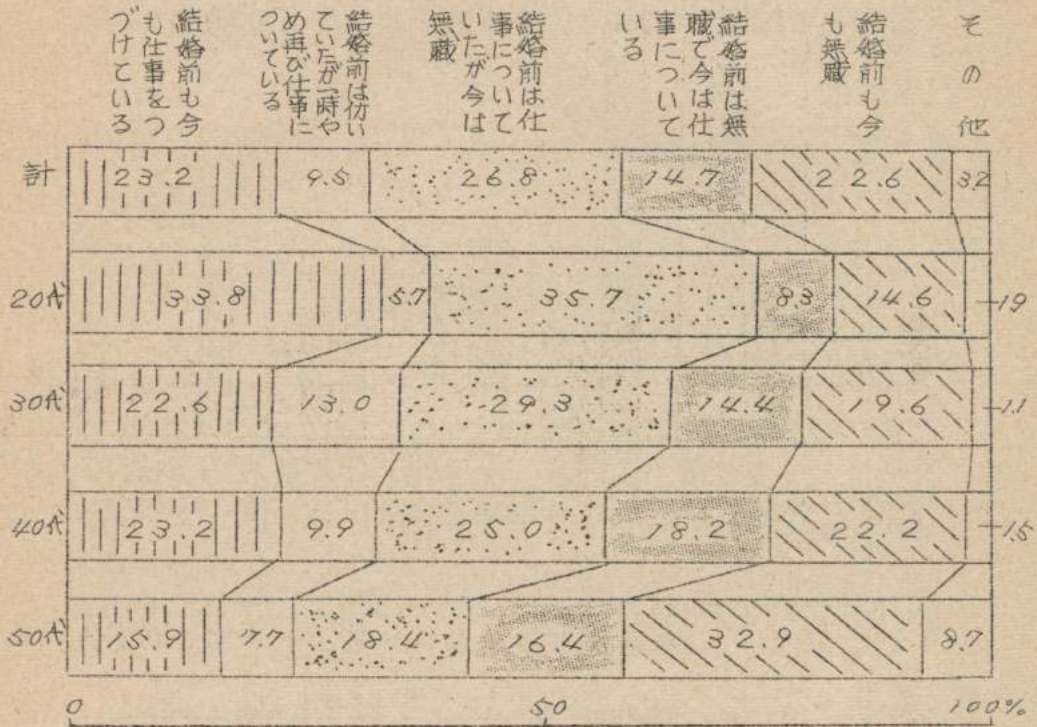 結婚前も今
も仕事をつ
づけている
結婚前は仂い
ていたが一時や
め再び仕事に
ついている
結婚前は仕
事について
いたが今は
無職
結婚前は無
職で今は仕
事について
いる
結婚前も今
も無職
その他
計 23.2 9.5 26.8 14.7 22.6 3.2
20代 33.8 5.7 35.7 8.3 14.6 1.9
30代 22.6 13.0 29.3 14.4 19.6 1.1
40代 23.2 9.9 25.0 18.2 22.2 1.5
50代 15.9 7.7 18.4 16.4 32.9 8.7
0 50 100%